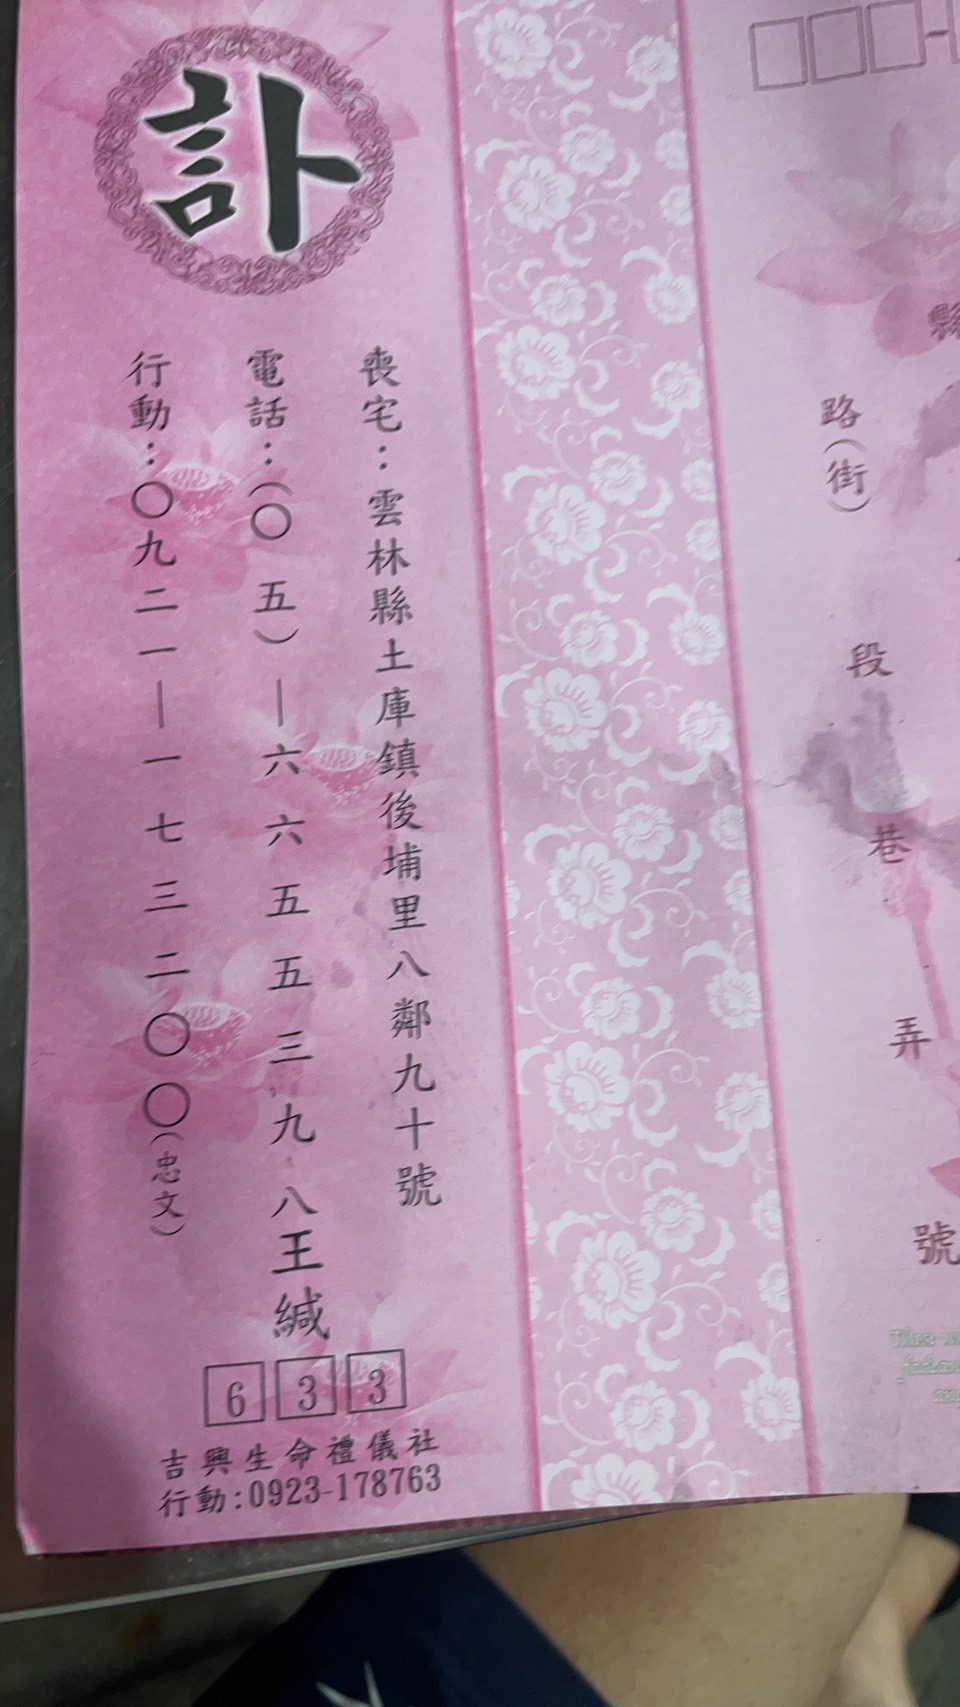 訃
縣
路（街）
段
巷
弄
號
喪宅：雲林縣土庫鎮後埔里八鄰九十號
電話：（〇五）—六六五五三九八王緘
行動：〇九二一—一七三二〇〇（忠文）
633
吉興生命禮儀社
行動:0923-178763